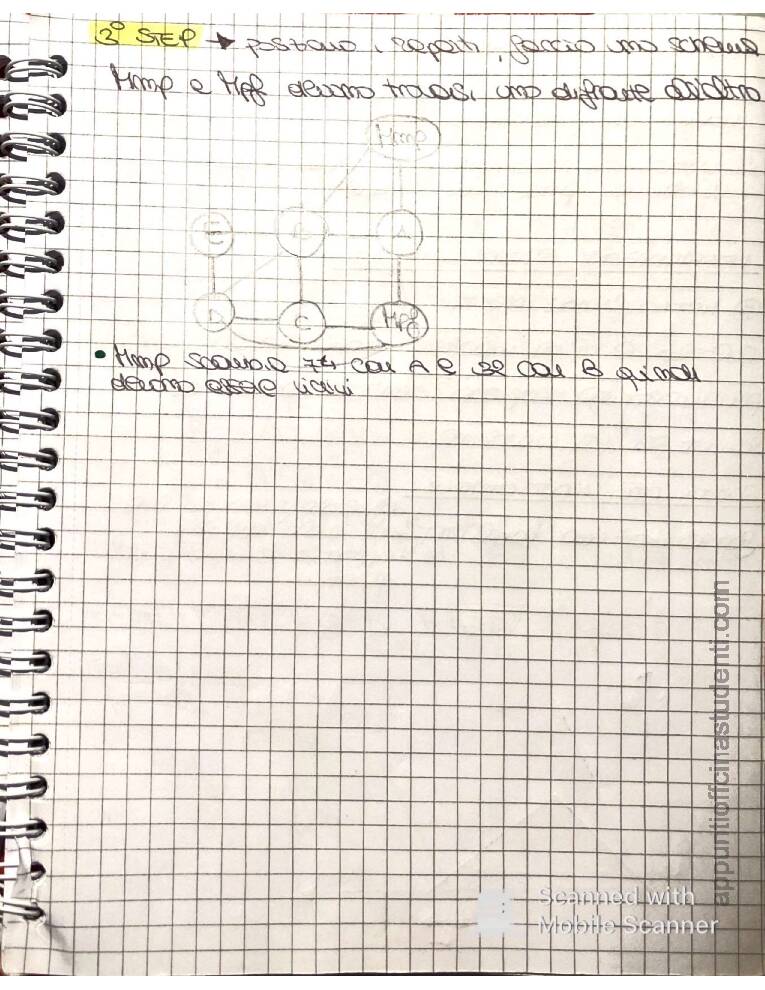 3° STEP → postano i reparti, faccio uno schema
Mmp e Mpf devono trovarsi uno di fronte all'altro
Mmp
E B A
D C Mpf
• Mmp scambia 74 con A e 32 con B quindi
devono essere vicini
appuntiofficinastudenti.com
Scanned with
Mobile Scanner